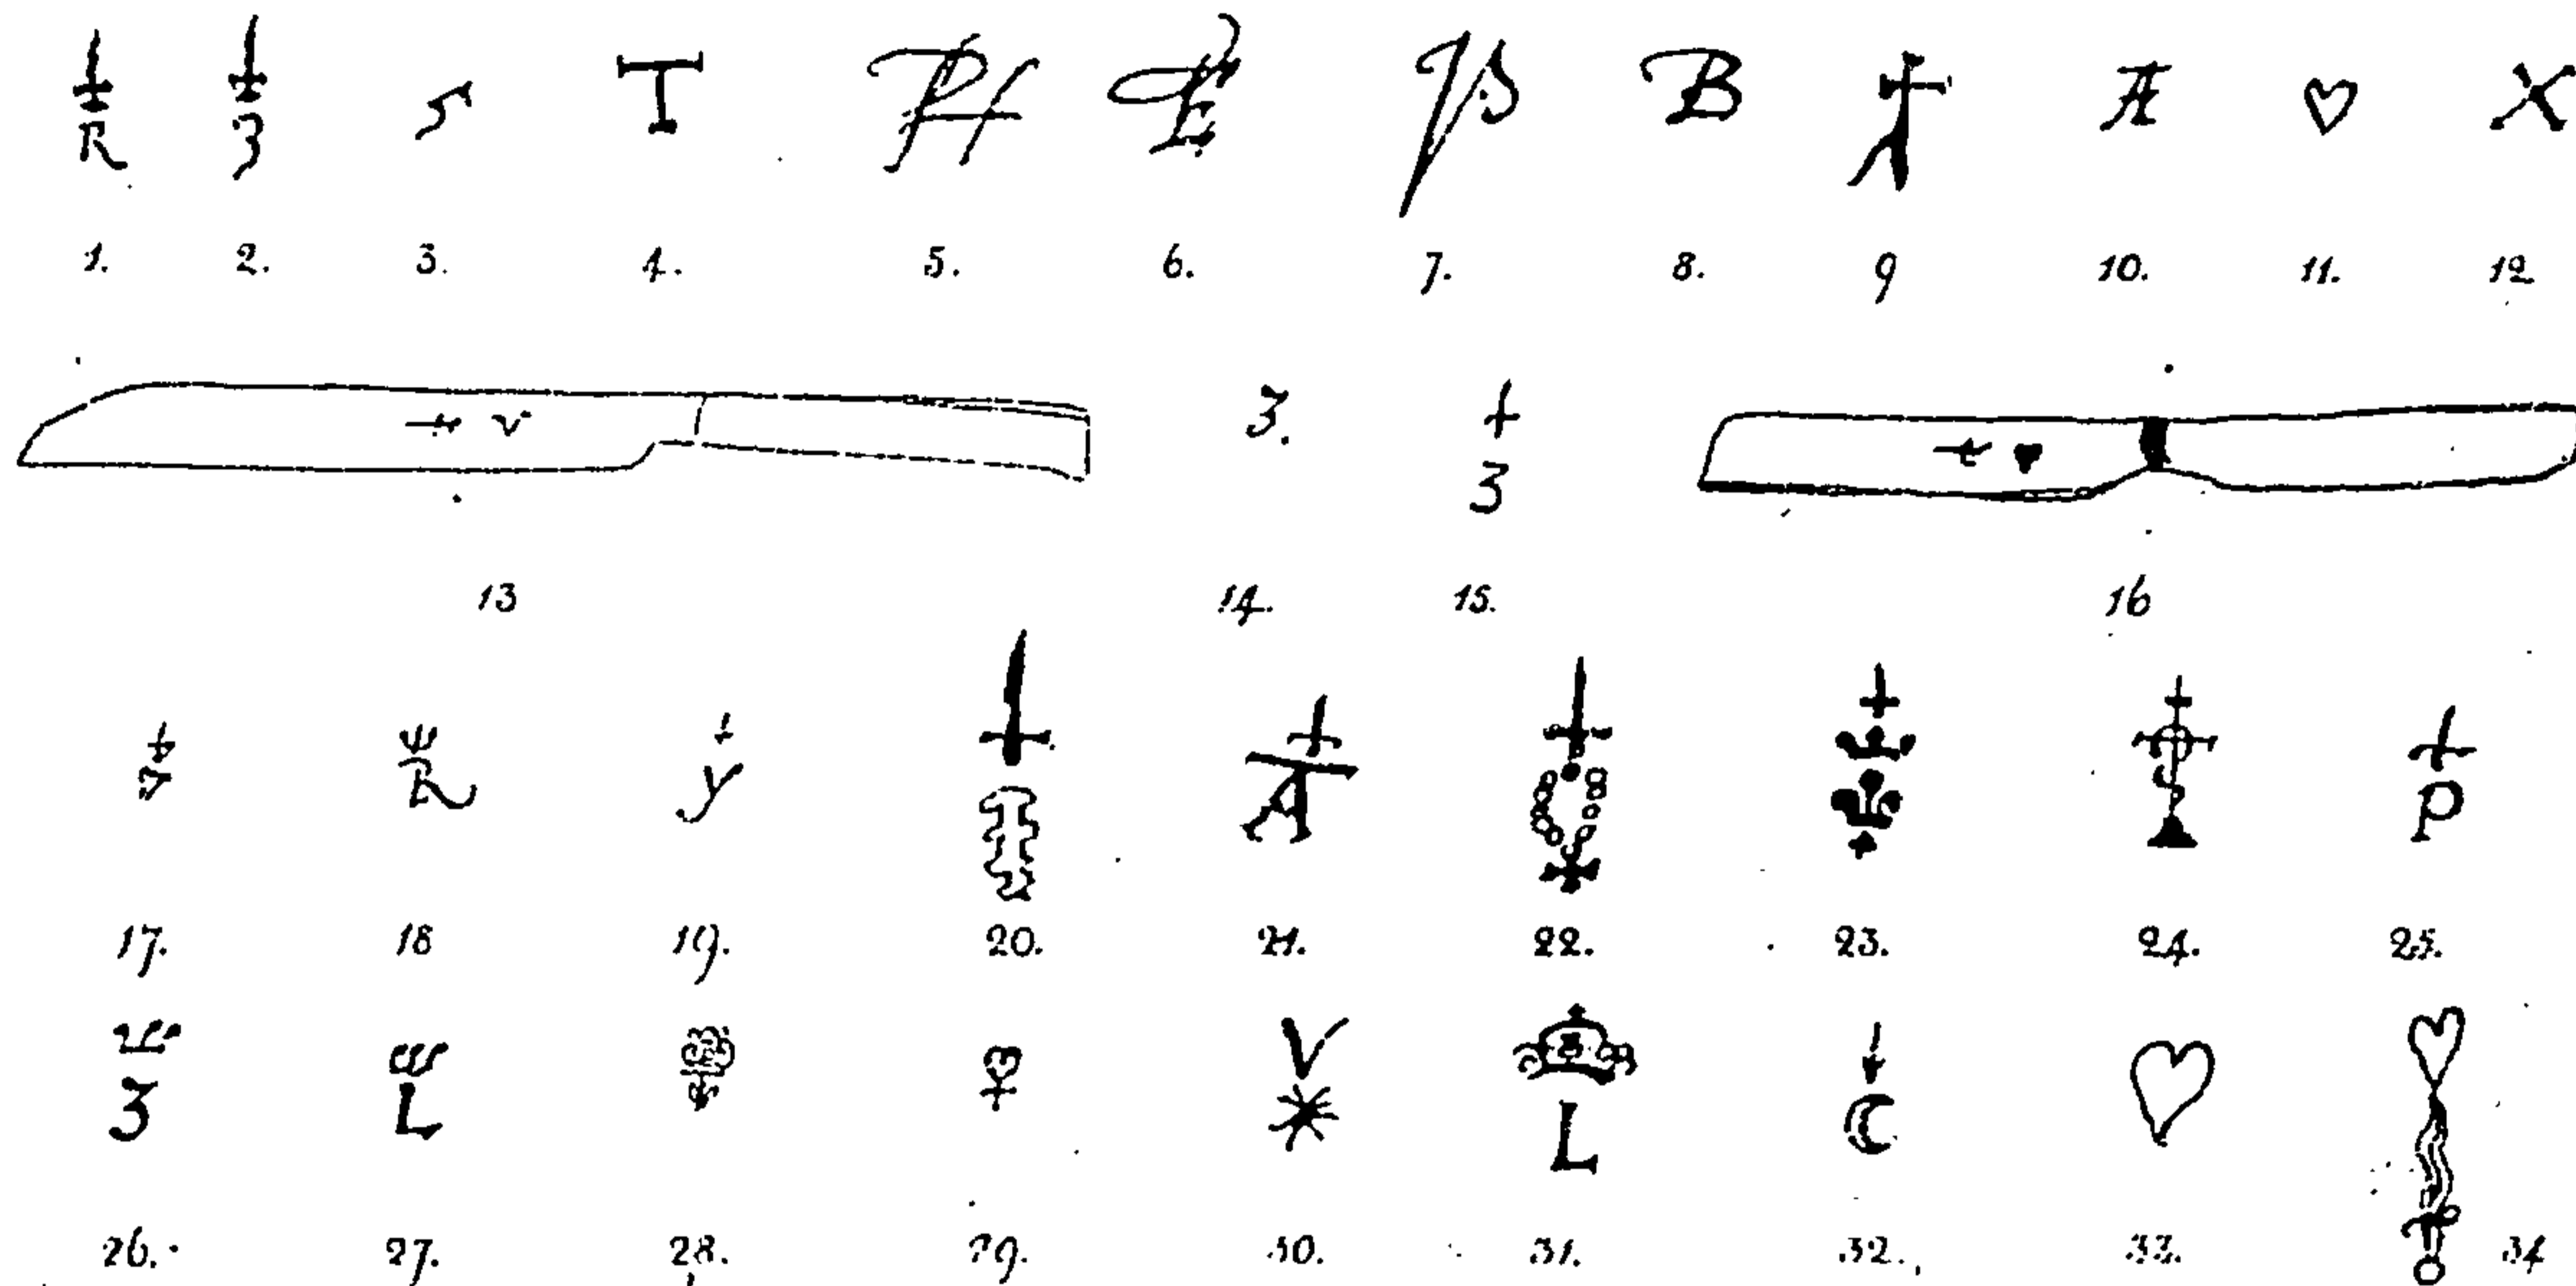 R 3 T B A X
1. 2. 3. 4. 5. 6. 7. 8. 9 10. 11. 12
v 3. 3
13 14. 15. 16
R y A P
17. 18 19. 20. 21. 22. 23. 24. 25.
3 L V L
26. 27. 28. 29. 30. 31. 32. 33. 34